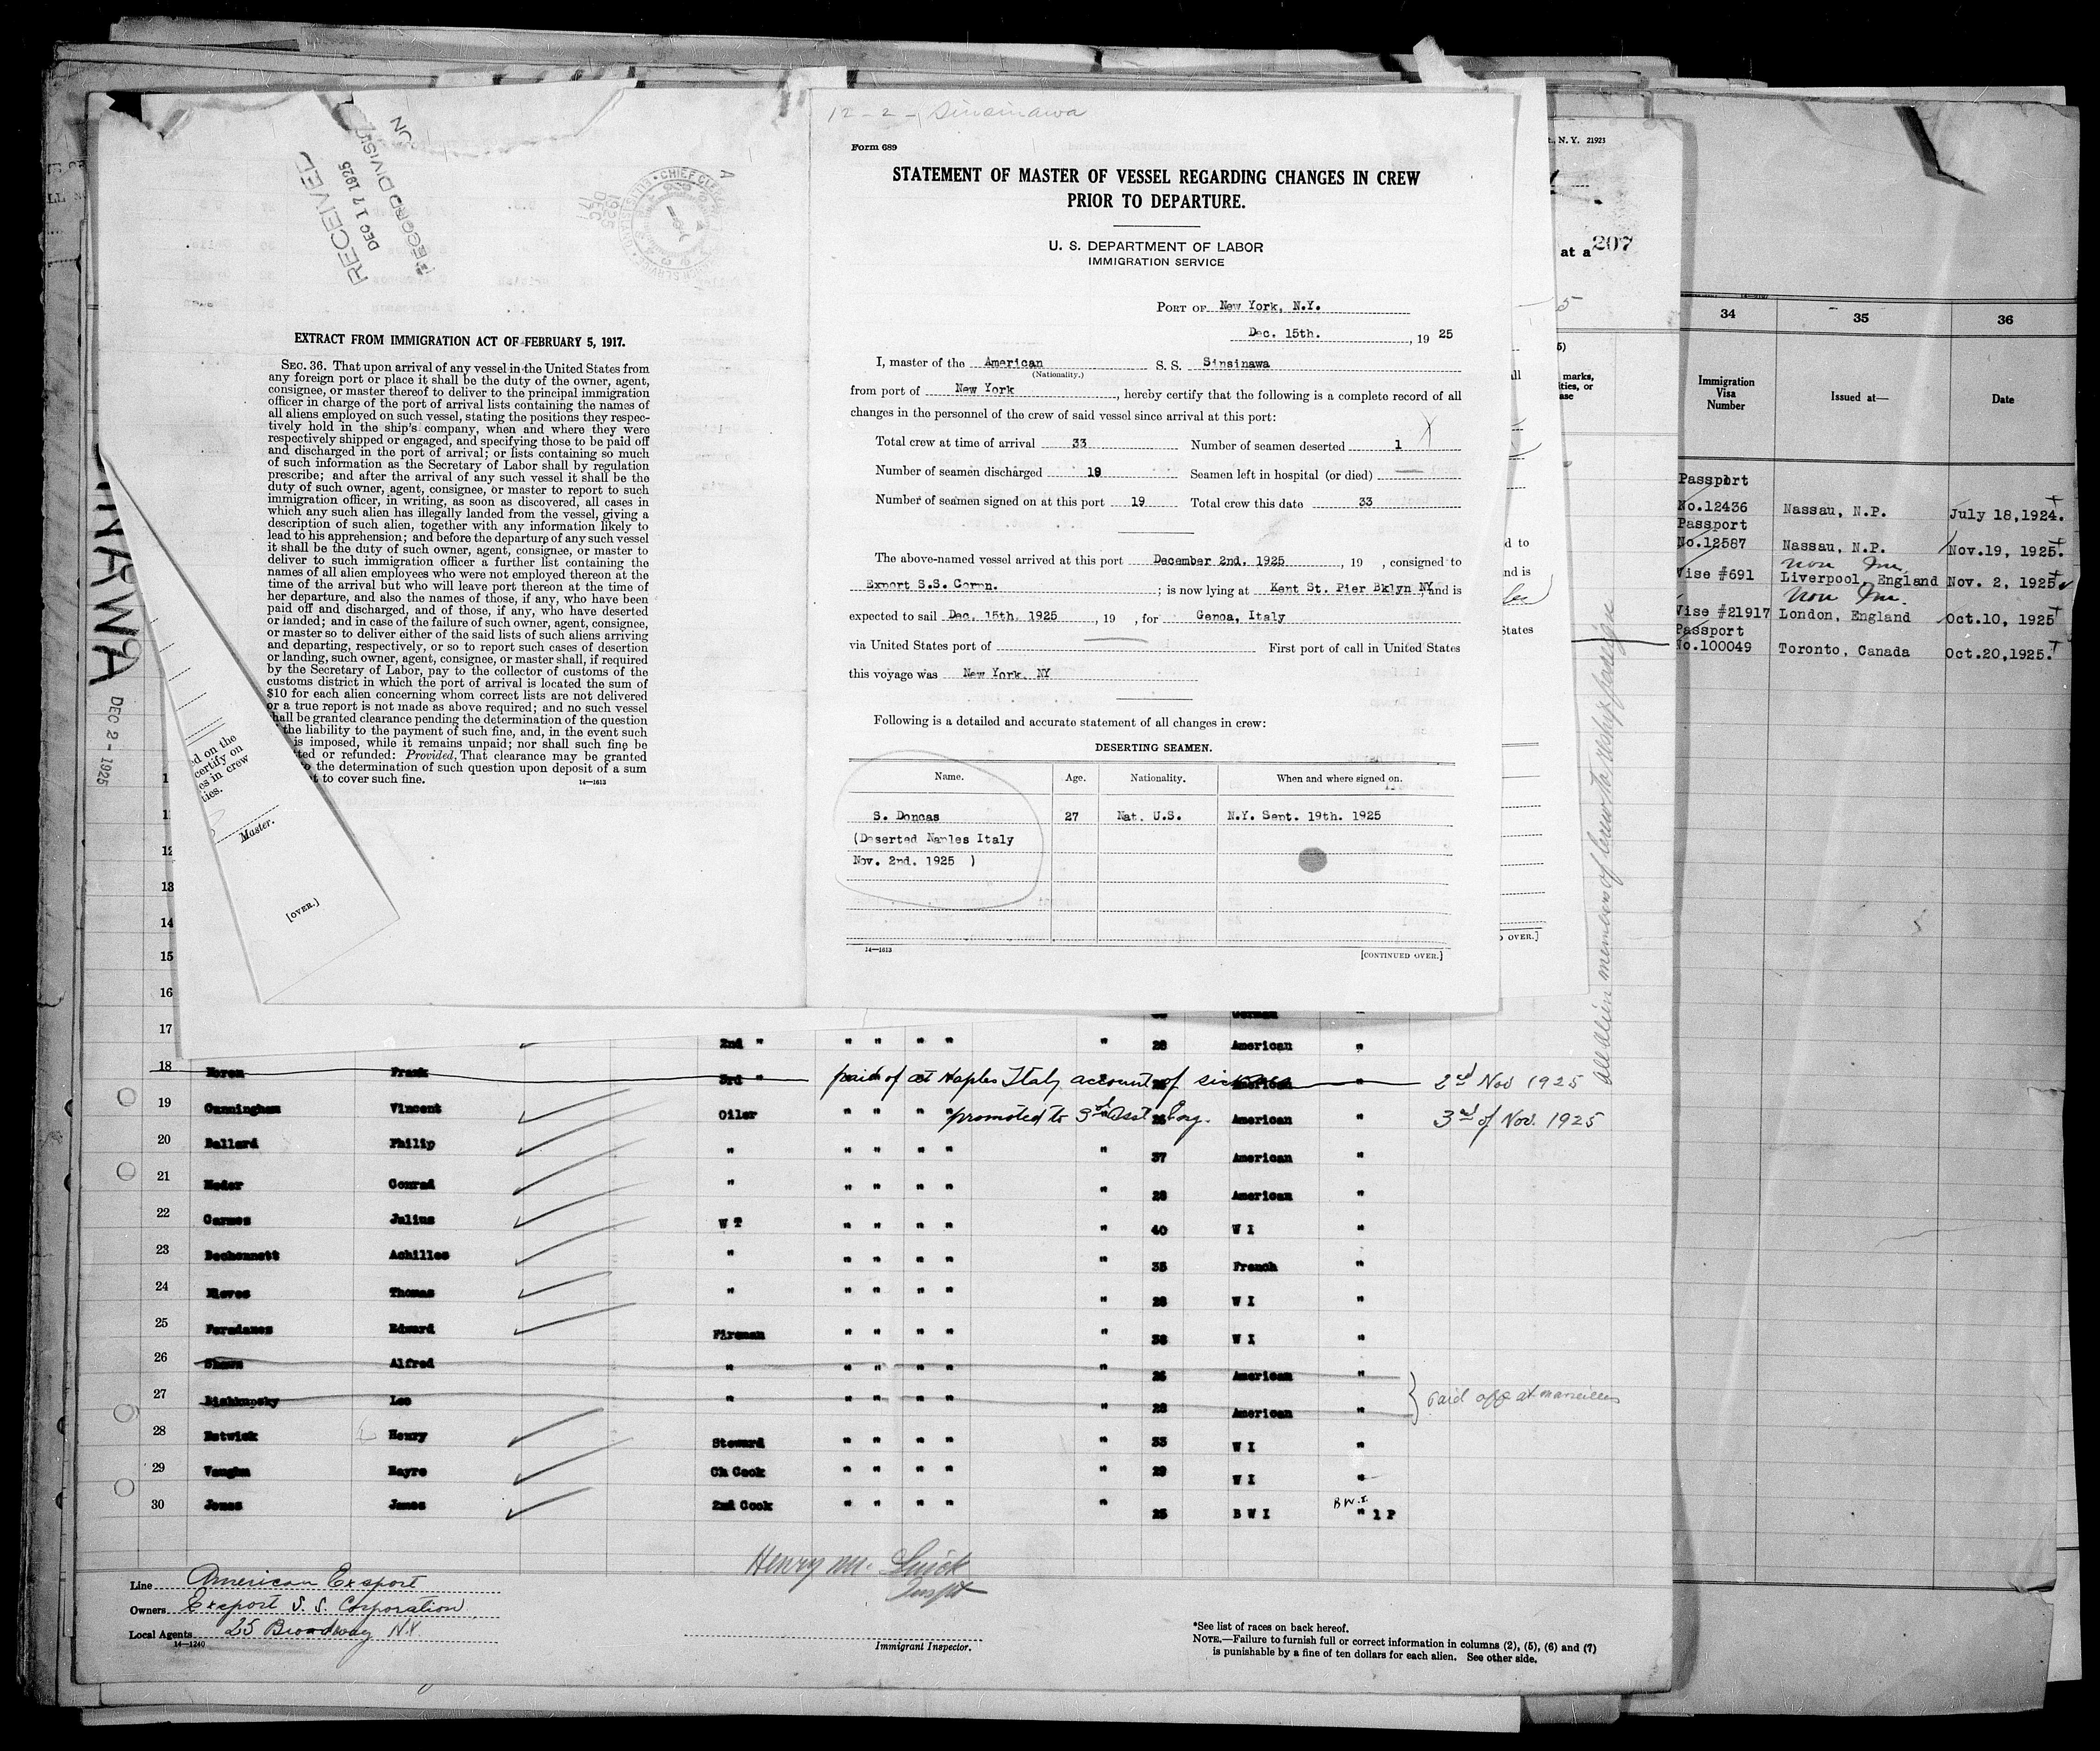 12-2- Sinsinawa
Form 689
STATEMENT OF MASTER OF VESSEL REGARDING CHANGES IN CREW
PRIOR TO DEPARTURE.
U. S. DEPARTMENT OF LABOR
IMMIGRATION SERVICE
PORT OF New York, N.Y.
Dec. 15th. , 19 25
I, master of the American S. S. Sinsinawa
(Nationality.)
from port of New York , hereby certify that the following is a complete record of all
changes in the personnel of the crew of said vessel since arrival at this port:
Total crew at time of arrival 33 Number of seamen deserted 1
Number of seamen discharged 18 Seamen left in hospital (or died) —
Number of seamen signed on at this port 19 Total crew this date 33
The above-named vessel arrived at this port December 2nd. 1925 , 19 , consigned to
Export S.S. Corpn. ; is now lying at Kent St. Pier Bklyn NY, and is
expected to sail Dec. 15th. 1925 , 19 , for Genoa, Italy
via United States port of First port of call in United States
this voyage was New York. NY
Following is a detailed and accurate statement of all changes in crew:
DESERTING SEAMEN.
Name. Age. Nationality. When and where signed on.
S. Doncas 27 Nat. U.S. N.Y. Sept. 19th. 1925
(Deserted Naples Italy
Nov. 2nd. 1925 )
14—1613 [CONTINUED OVER.]
RECEIVED
DEC 17 1925
RECORD DIVISION
DEC 17 1925
EXTRACT FROM IMMIGRATION ACT OF FEBRUARY 5, 1917.
SEC. 36. That upon arrival of any vessel in the United States from
any foreign port or place it shall be the duty of the owner, agent,
consignee, or master thereof to deliver to the principal immigration
officer in charge of the port of arrival lists containing the names of
all aliens employed on such vessel, stating the positions they respec-
tively hold in the ship's company, when and where they were
respectively shipped or engaged, and specifying those to be paid off
and discharged in the port of arrival; or lists containing so much
of such information as the Secretary of Labor shall by regulation
prescribe; and after the arrival of any such vessel it shall be the
duty of such owner, agent, consignee, or master to report to such
immigration officer, in writing, as soon as discovered, all cases in
which any such alien has illegally landed from the vessel, giving a
description of such alien, together with any information likely to
lead to his apprehension; and before the departure of any such vessel
it shall be the duty of such owner, agent, consignee, or master to
deliver to such immigration officer a further list containing the
names of all alien employees who were not employed thereon at the
time of the arrival but who will leave port thereon at the time of
her departure, and also the names of those, if any, who have been
paid off and discharged, and of those, if any, who have deserted
or landed; and in case of the failure of such owner, agent, consignee,
or master so to deliver either of the said lists of such aliens arriving
and departing, respectively, or so to report such cases of desertion
or landing, such owner, agent, consignee, or master shall, if required
by the Secretary of Labor, pay to the collector of customs of the
customs district in which the port of arrival is located the sum of
$10 for each alien concerning whom correct lists are not delivered
or a true report is not made as above required; and no such vessel
shall be granted clearance pending the determination of the question
the liability to the payment of such fine, and, in the event such
is imposed, while it remains unpaid; nor shall such fine be
tted or refunded: Provided, That clearance may be granted
the determination of such question upon deposit of a sum
t to cover such fine.
14—1613
ed on the
certify on
es in crew
ties.
Master.
[OVER.]
DEC 2 - 1925
, N. Y. 21923
at a 207
34 35 36
Immigration Visa Number Issued at— Date
Passport
No.12436 Nassau, N.P. July 18,1924.
Passport
No.12587 Nassau, N.P. Nov.19, 1925.
non Im.
Vise #691 Liverpool, England Nov. 2, 1925
non Im.
Vise #21917 London, England Oct.10, 1925
Passport
No.100049 Toronto, Canada Oct.20,1925.
all alien members of crew to reship foreign
12
13
14
15
16
17 2nd " " " " " " 28 American "
18 Frank 3rd " paid of at Naples Italy account of sickness American " 2nd Nov 1925
19 Cunningham Vincent Oiler " " " promoted to 3rd Asst Eng. 26 American " 3rd of Nov. 1925
20 Ballard Philip " " " " " " 37 American "
21 Meder Conrad " " " " " " 28 American "
22 Carmes Julius W T " " " " " 40 W I "
23 Bechennett Achilles " " " " " " 35 French "
24 Nieves Thomas " " " " " " 28 W I "
25 Fernandes Edward Fireman " " " " " 38 W I "
26 Shawn Alfred " " " " " " 26 American "
27 Bishkupsky Leo " " " " " " 28 American " paid off at Marseilles
28 Estwick Henry Steward " " " " " 33 W I "
29 Vaughn Hayre Ch Cook " " " " " 29 W I "
30 Jones James 2nd Cook " " " " " 25 B W I B W.I. " 1 P
Henry M. Quick
Inspt
Immigrant Inspector.
Line American Export
Owners Export S. S. Corporation
Local Agents 25 Broadway N.Y.
14—1240
*See list of races on back hereof.
NOTE.—Failure to furnish full or correct information in columns (2), (5), (6) and (7)
is punishable by a fine of ten dollars for each alien. See other side.